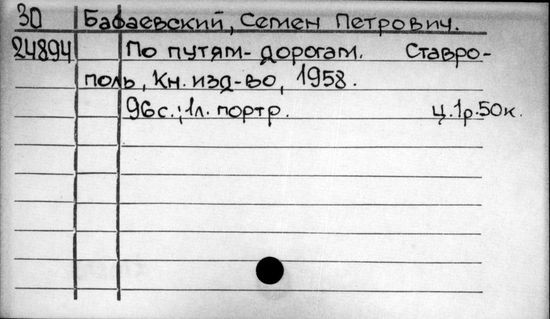 30 Бабаевский, Семен Петрович.
24894 По путям-дорогам. Ставро-
поль, Кн. изд-во, 1958.
96с.; 1л. портр. ц. 1р. 50к.